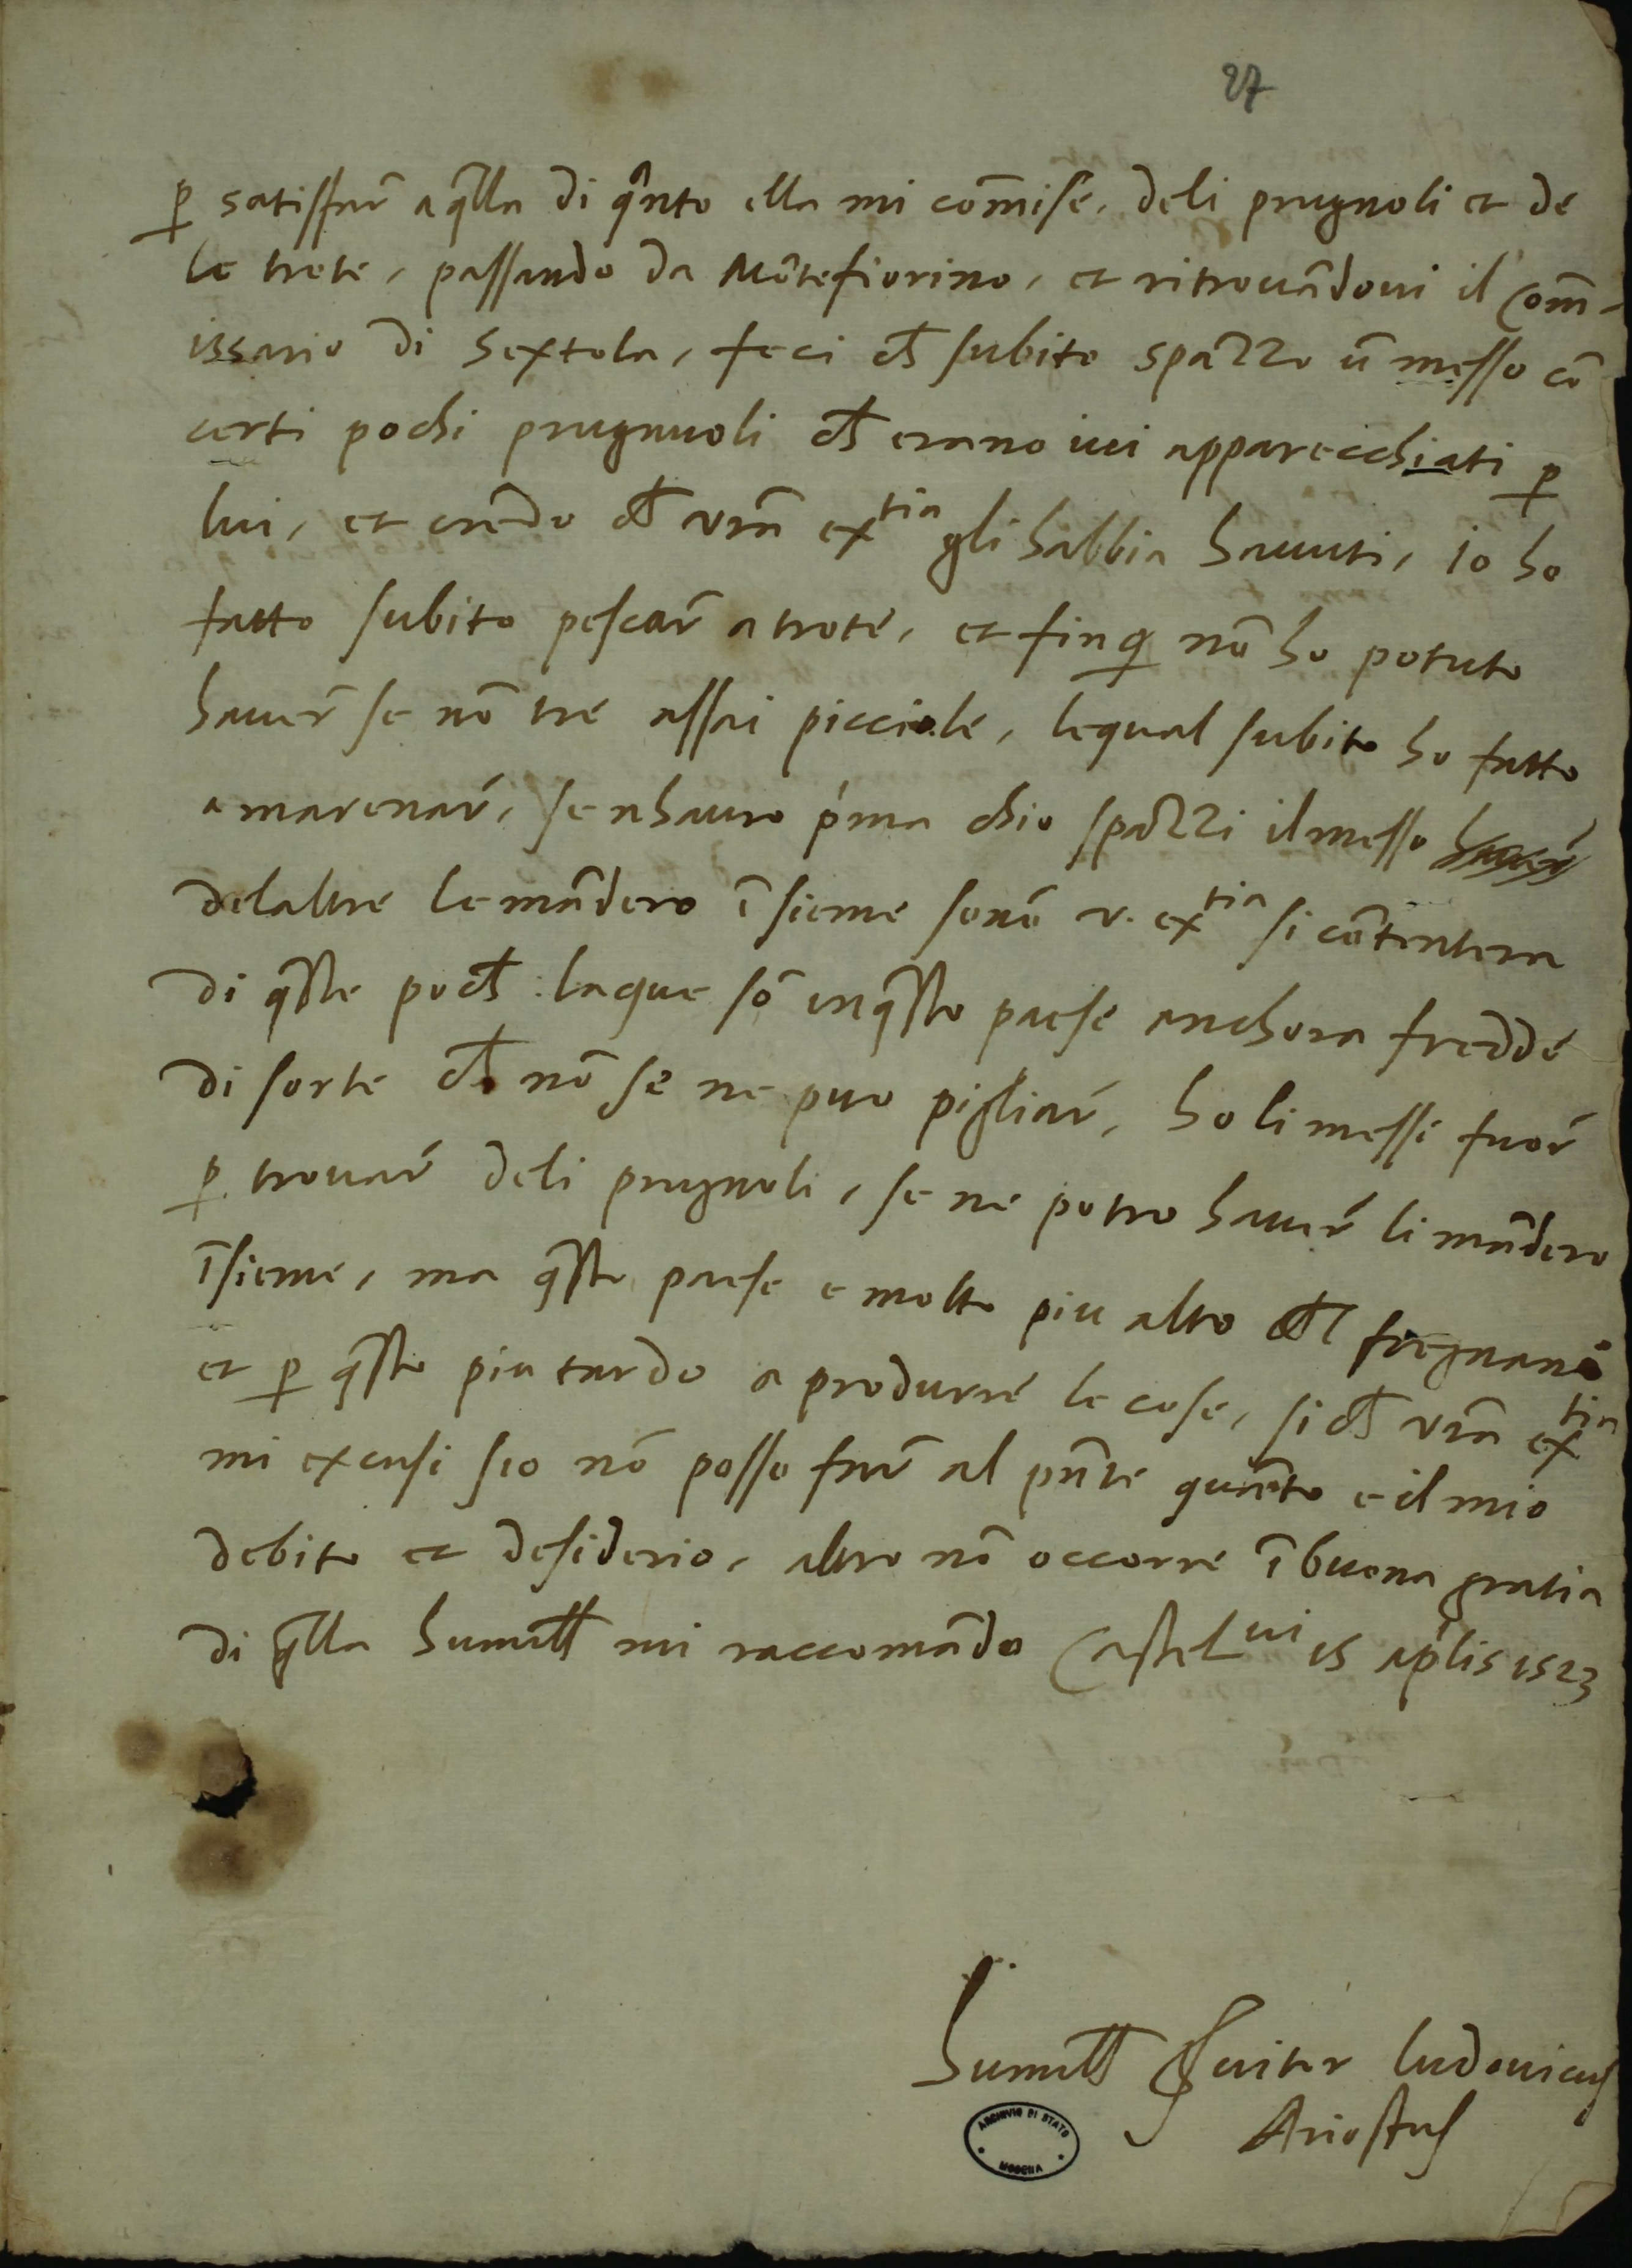 27
p̱ satisfar̃ a q̃lla di q̃nto ella mi com̃ise, deli prugnoli et de
le trote, passando da Mõtefiorino, et ritrouãdoui il Com̃-
issario di Sextola, feci ch̃ subito spazzo ũ messo cõ
certi pochi prugnuoli ch̃ erano iui apparecchiati p̱
lui, et credo ch̃ vrã extia gli habbia hauuti, io ho
fatto subito pescar̃ a trote, et fin q̱ nõ ho potuto
hauer̃ se nõ tre assai picciole, lequal subito ho fatto
amarenar̃, se nhauro p̃ma chio spazzi il messo
delaltre le mãdero ĩsieme se nõ v. extia si cõtentera
di q̃ste poch̃: laque sõ in q̃sto paese anchora fredde
di sorte ch̃ nõ se ne puo pigliar̃, ho li messi fuor̃
p̱ trouar̃ deli prugnoli, se ne potro hauer̃ li mãdero
ĩsieme, ma q̃sto paese e molto piu alto ch̃l fregnano
et p̱ q̃sto piu tardo a produrre le cose, si ch̃ vrã extia
mi excusi sio nõ posso far̃ al pñte quãto e il mio
debito et desiderio, altro nõ occorre ĩ buona gratia
di q̃lla humilṭ mi raccomãdo Castelui 15 ap̃lis 1523
humilṭ Seruiter Ludouicus
Ariostus
ARCHIVIO DI STATO
MODENA